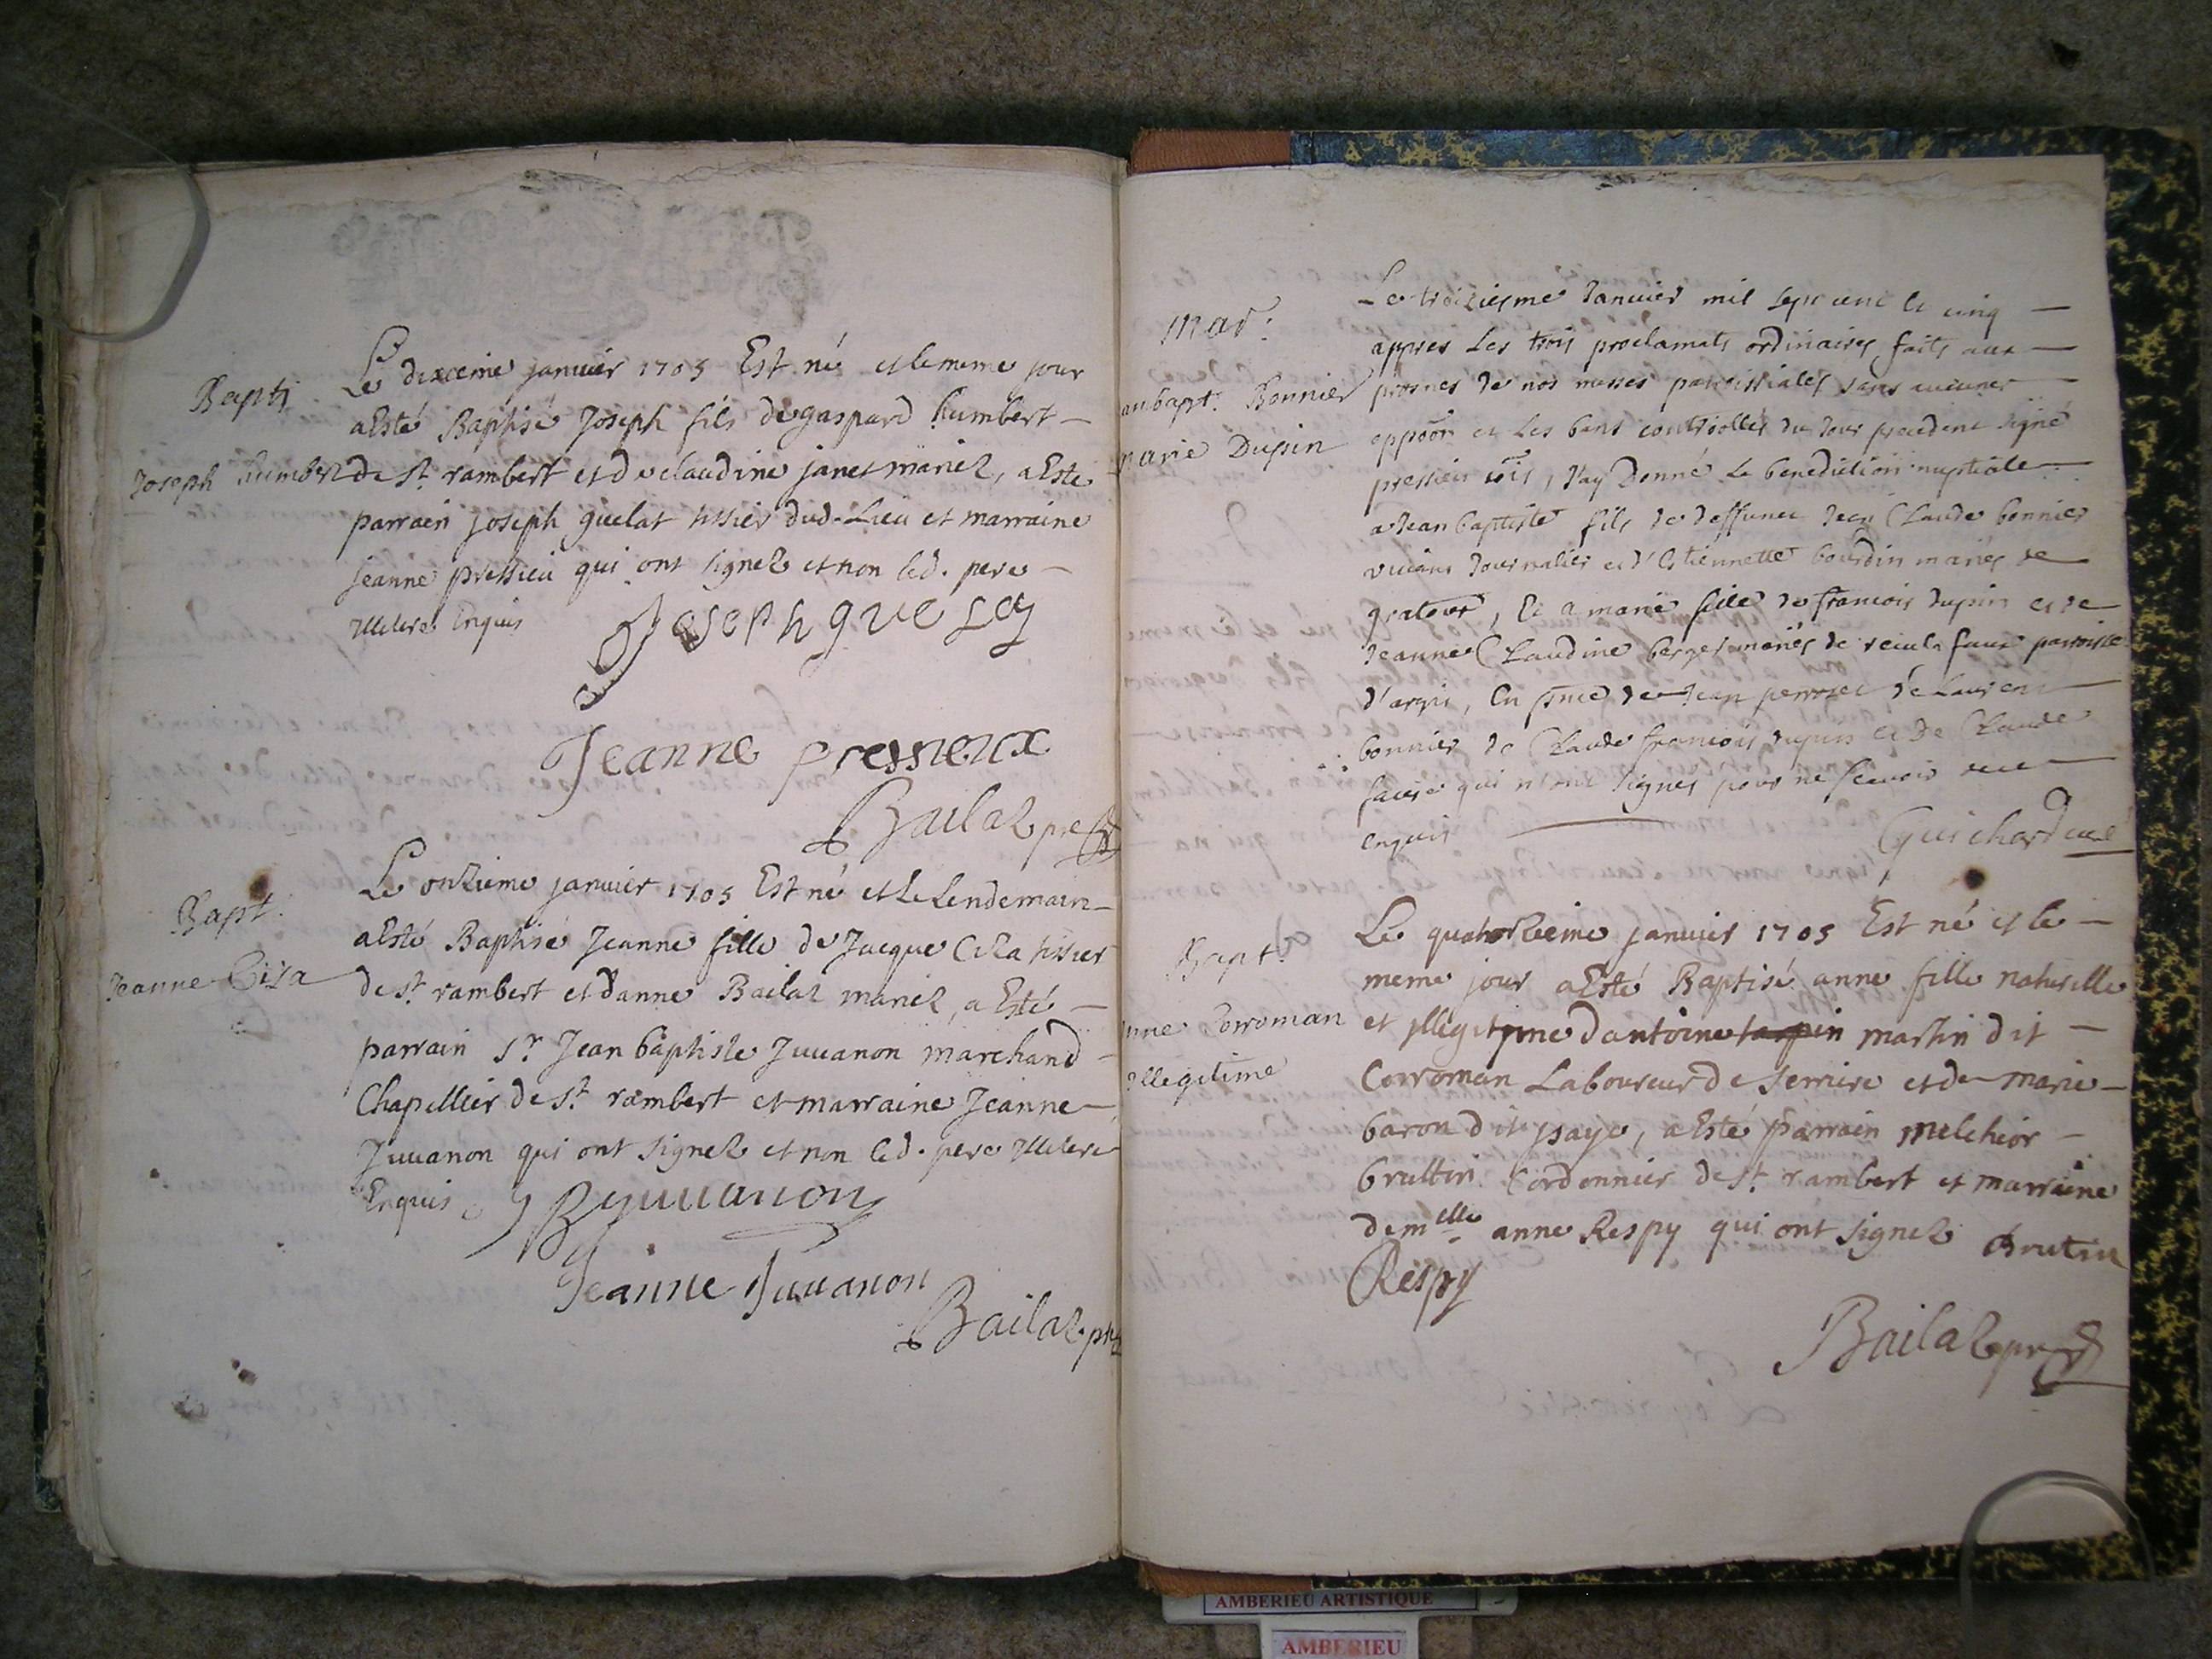 Bapti
Joseph humbert
Le dixceime janvier 1705 Est né et le meme jour
a Esté Baptisé Joseph fils de gaspard humbert
de st. rambert et de claudine janet mariez, a Esté
parrain joseph guelat tissier dud. Lieu et marraine
jeanne pressieu qui ont signez et non led. pere
illitere Enquis
Joseph gue
Jeanne pressieux
Bailaz pre
Bapt.
Jeanne Ciza
Le onzieme janvier 1705 Est né et Le Lendemain
a Esté Baptisé Jeanne fille de Jacque Ciza tissier
de st. rambert et danne Bailaz mariez, a Esté
parrain sr. Jean baptiste Juvanon marchand
Chapellier de st. rambert et marraine Jeanne
Juvanon qui ont signez et non led. pere illitere
Enquis
J B Juvanon
Jeanne Juvanon
Bailaz pre
mar:
an bapt. Bonnier
marie Dupin
Le troiziesme Janvier mil sept cent et cinq
appres Les trois proclamats ordinaires faits aux
prosnes de nos messes parroissiales sans aucunes
oppoōn et Les bans controlles du Jour precedent signé
pressieu , J'ay Donné La benediction nuptiale
a Jean baptiste fils de deffunct Jean Claude bonnier
vivant Journalier et d'Estiennette bourdin mariés de
, Et a marie fille de francois dupin et de
Jeanne Claudine berger mariés de parroisse
d'argis, En de Jean de Laurent
bonnier de Claude francois dupin et De Claude
qui n'ont signes pour ne scavoir
enquis
Guichard curé
Bapt.
anne Corroman
illegitime
Le quatorzieme janvier 1705 Est né et le
meme jour a Esté Baptisé anne fille naturelle
et jllegitjme dantoine tarpin martin dit
Corroman Laboureur de serriere et de marie
baron dit psaye, a Esté parrain melchior
bruttin Cordonnier de st. rambert et marraine
demelle anne Respy qui ont signez Brutin
Respy
Bailaz pre
AMBERIEU ARTISTIQUE
AMBERIEU